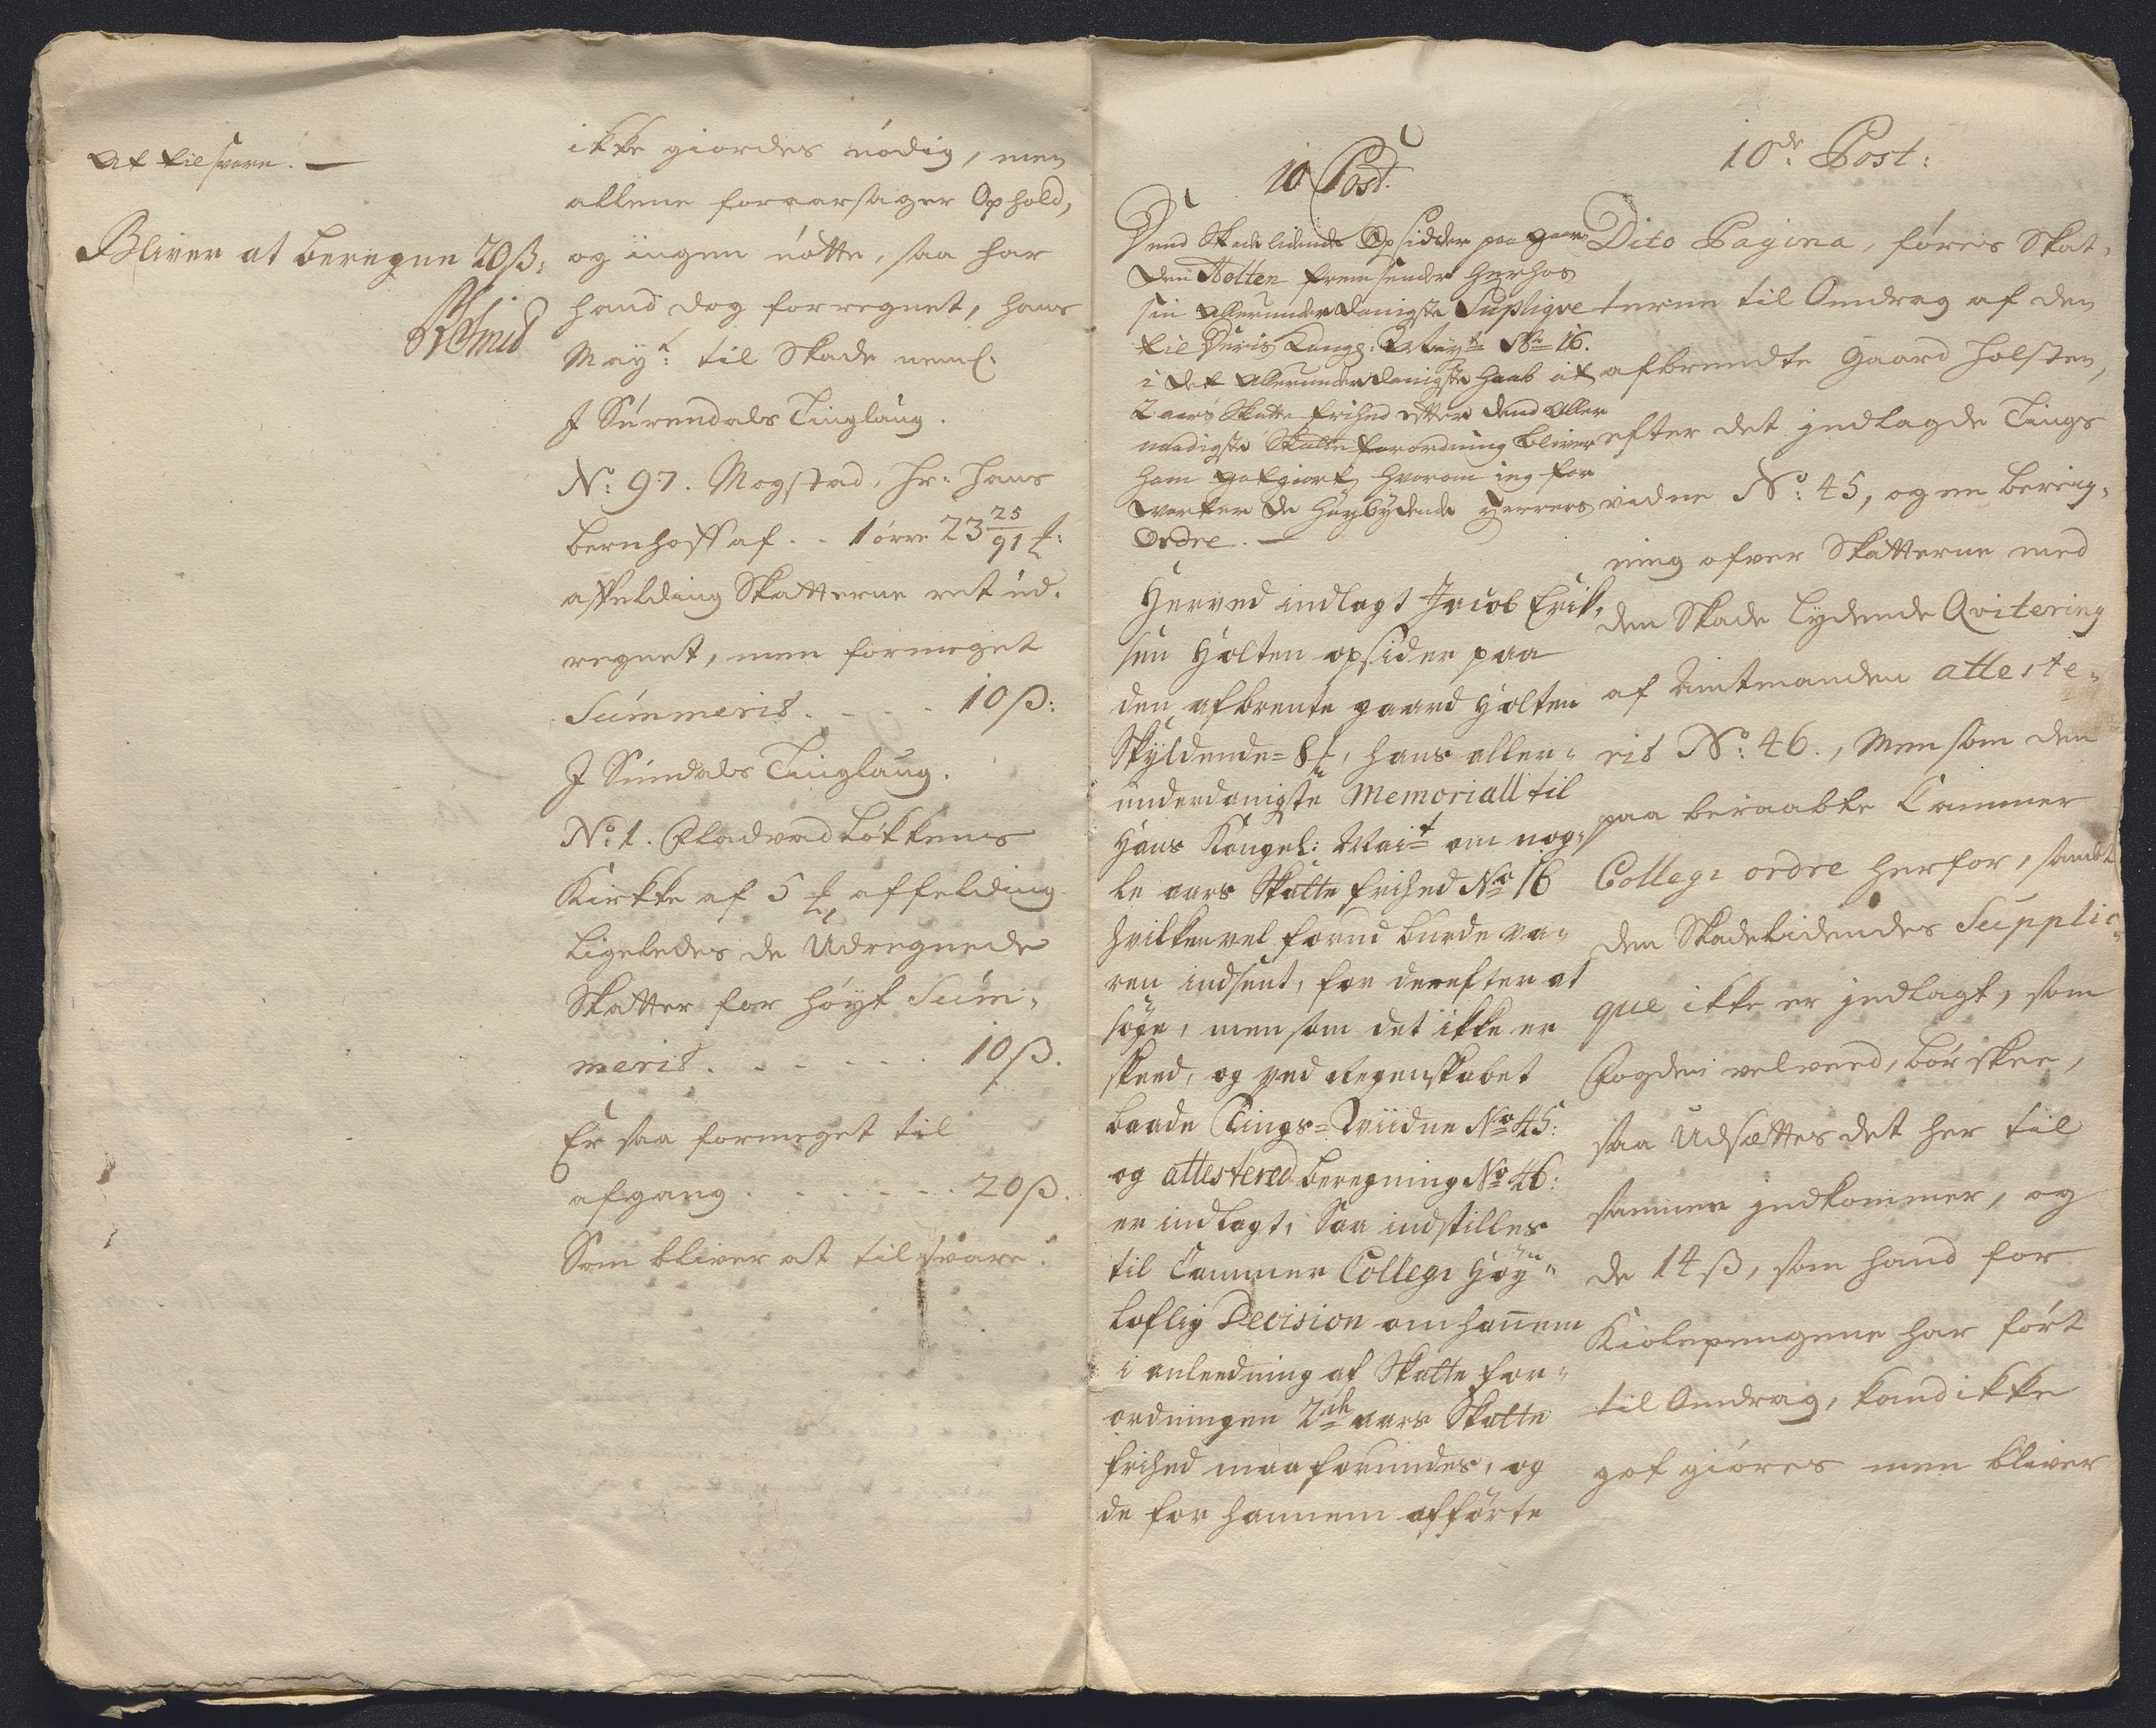 At til svare. —
Bliver at beregne 20 ß:
Smid
ikke giordes nödig, men
allene foraarsager Ophold,
og ingen nötte, saa har
hand dog forregnet, hans
Mayt: til Skade neml.
J Surendals Tinglaug.
No: 97. Mogstad, Hr: Hans
Bernhoff af . . 1 öre 23 25/91
affelding Skatterne ret ud-
regnet, men formeget
Summerit . - - - 10 ß:
J Sundals Tinglaug.
No: 1. Fladvad Lökkens
Kirkke af 5 affelding
Ligeledes de Udregnede
Skatter for höyt Sum-
merit . - - - - - 10 ß.
Er saa formeget til
afgang . - - - - - 20 ß.
Som bliver at til svare.
10 Post.
Dend Skade lidende Opsidder paa gaar-
den Holten fremsender herhos
sin allerunderdanigste Supliqve
til Deris Kongl: Mayt No 16.
i det allerunderdanigste Haab at
2 aars Skatte frihed efter dend aller
naadigste Skatte forordning bliver
ham got giort, hvorom ieg for
varter de Höybydende Herrers
Ordre. —
Herved indlagt Jacob Erik-
sen Holten opsider paa
den afbrente gaard Holten
Skyldende = 8, hans aller-
underdanigste Memoriall til
Hans Kongel: Mait om nog-
le aars Skatte frihed No 16
hvilken vel forud burde va-
ren indsent, for derefter at
söge, men som det ikke er
skeed, og ved Regenskabet
baade Tings-Vidne No 45:
og attestered beregning No 46:
er indlagt, Saa indstilles
til Cammer Collegi Höy-
loflig Decision om hannem
i anleedning af Skatte for-
ordningen 2de aars Skatte
frihed maa forundes, og
de for hannem afförte
10de Post:
Dito Pagina, föres Skat-
terne til Omdrag af den
afbrendte Gaard Holsten,
efter det jndlagde Tings
vidne No: 45, og en Bereg-
ning ofver Skatterne med
den Skade Lydende Qvitering
af Amtmanden atteste-
rit No: 46., Men som den
paa beraabte Cammer
Collegi ordre herfor, samt
den Skadelidendes Supplic-
que ikke er jndlagt, som
Fogden velveed, bör skee,
saa Udsættes det her til
samme jndkommer, og
de 14 ß, som hand for
Kiolepengene har fört
til Omdrag, kand ikke
got giöres men bliver